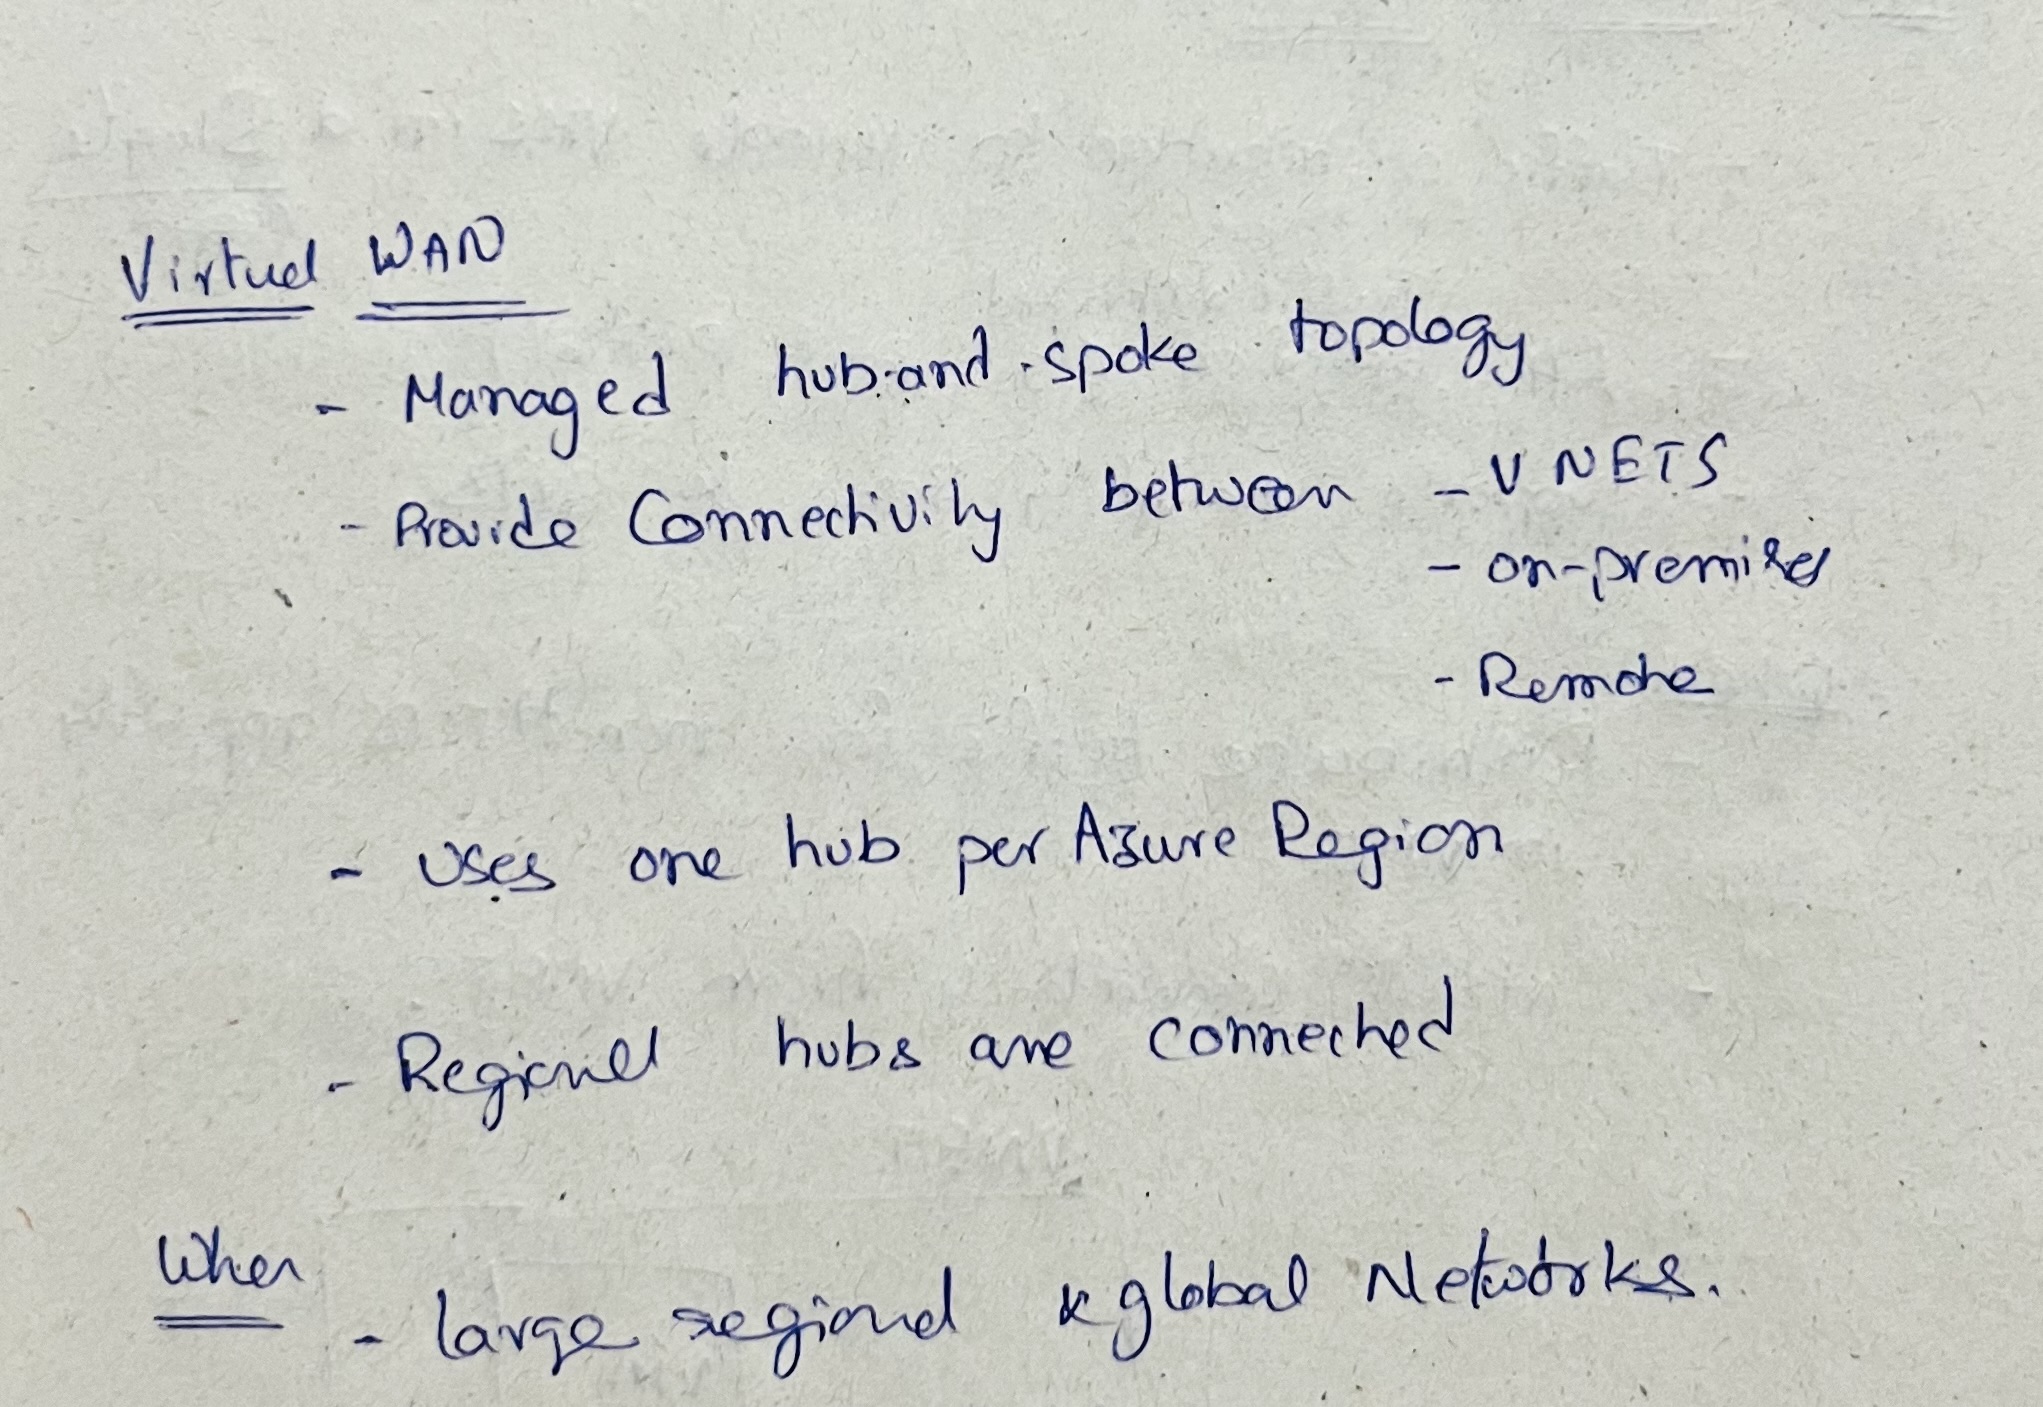 Virtual WAN
- Managed hub-and-spoke topology
- Provide Connectivity between - VNETS
- on-premises
- Remote
- Uses one hub per Azure Region
- Regional hubs are connected
When
- Large regional & global Networks.